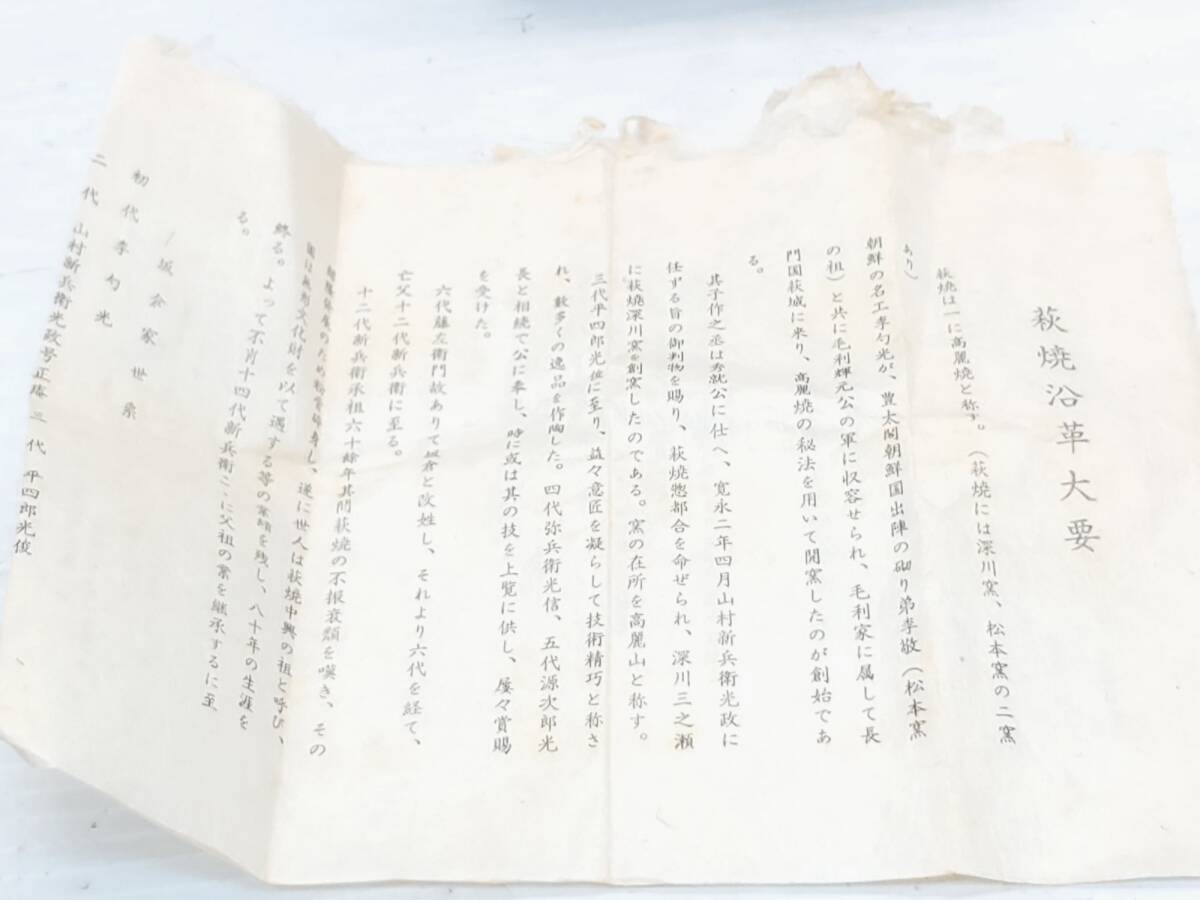 萩焼沿革大要
萩焼は一に高麗焼と称す。(萩焼には深川窯、松本窯の二窯
あり)
朝鮮の名工李勺光が、豊太閤朝鮮国出陣の砌り弟李敬(松本窯
の祖)と共に毛利輝元公の軍に収容せられ、毛利家に属して長
門国萩城に来り、高麗焼の秘法を用いて開窯したのが創始であ
る。
其子作之丞は秀就公に仕へ、寛永二年四月山村新兵衛光政に
任ずる旨の御判物を賜り、萩焼惣都合を命ぜられ、深川三之瀬
に萩焼深川窯を創窯したのである。窯の在所を高麗山と称す。
三代平四郎光俊に至り、益々意匠を凝らして技術精巧と称さ
れ、数多くの逸品を作陶した。四代弥兵衛光信、五代源次郎光
長と相続て公に奉し、時に或は其の技を上覧に供し、屡々賞賜
を受けた。
六代藤左衛門故ありて坂倉と改姓し、それより六代を経て、
亡父十二代新兵衛に至る。
十二代新兵衛承祖六十餘年其間萩焼の不振衰頽を嘆き、その
のため粉骨砕身し、遂に世人は萩焼中興の祖と呼び、
国は無形文化財を以て遇する等の業績を残し、八十年の生涯を
終る。よって不肖十四代新兵衛こゝに父祖の業を継承するに至
る。
坂倉家世系
初代李勺光
二代 山村新兵衛光政号正庵 三代 平四郎光俊